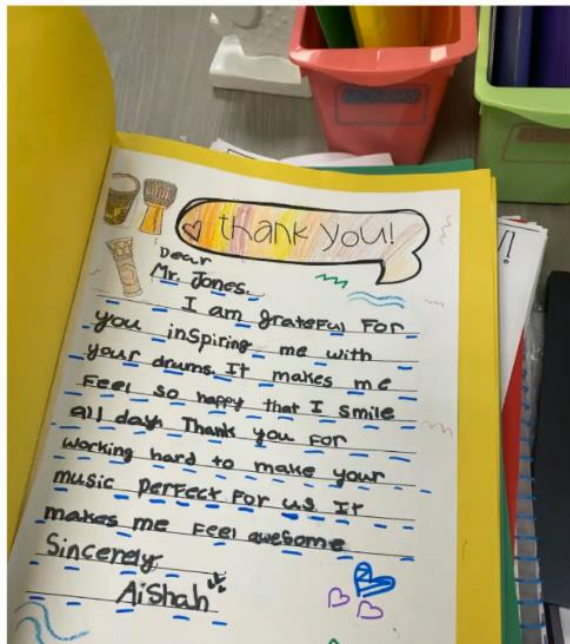 thank you!
Dear
Mr. Jones.
I am grateful For
you inspiring me with
your drums. It makes me
Feel so happy that I smile
all day. Thank you for
working hard to make your
music perfect For us It
makes me Feel awesome
Sincerely
Aishah